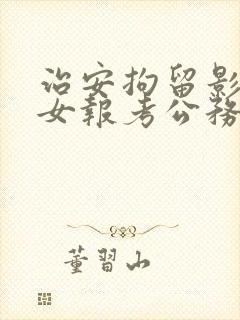 治安拘留影
女报考公务
董習山